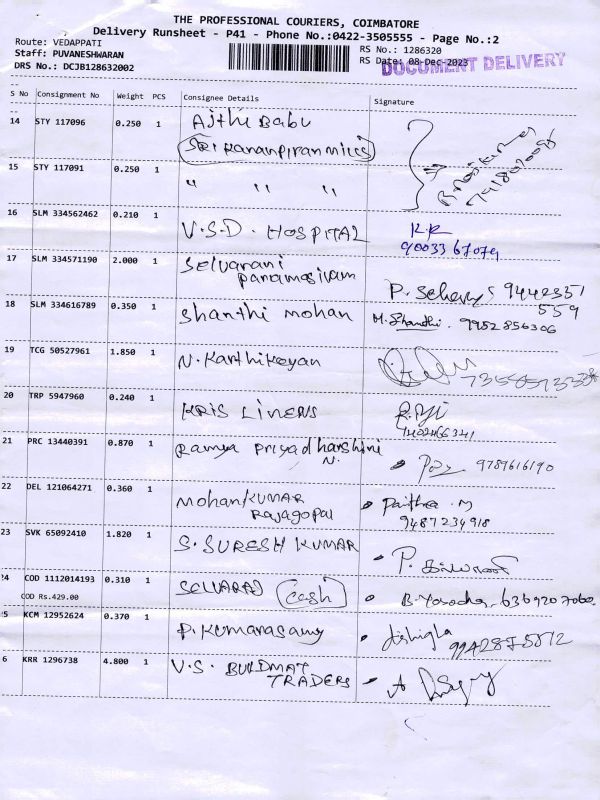 THE PROFESSIONAL COURIERS, COIMBATORE
Delivery Runsheet - P41 - Phone No.:0422-3505555 - Page No.:2
Route: VEDAPPATI
RS No.: 1286320
Staff: PUVANESHWARAN
RS Date: 08-Dec-2023
DOCUMENT DELIVERY
DRS No.: DCJB128632002
S No Consignment No Weight PCS Consignee Details Signature
14 STY 117096 0.250 1 Ajthi Babu
Sri Kananpiran mills
15 STY 117091 0.250 1 " " "
16 SLM 334562462 0.210 1 V.S.D. HOSPITAL K.R
9003367079
17 SLM 334571190 2.000 1 Selvarani
paramasivam
P. 9442351
559
18 SLM 334616789 0.350 1 Shanthi mohan M. Shanthi. 9952856306
19 TCG 50527961 1.850 1 N. Karthikeyan
20 TRP 5947960 0.240 1 KRIS LINENS
9402466341
21 PRC 13440391 0.870 1 Ramya Priyadharshini
N.
9789616190
22 DEL 121064271 0.360 1 MohanKUMAR
Rajagopal
Pavithra. M
9487234918
23 SVK 65092410 1.820 1 S. SURESH KUMAR P.
24 COD 1112014193 0.310 1 SELVARAJ Cash
COD Rs.429.00
B. Yasodha. 6369207060
5 KCM 12952624 0.370 1 P. Kumarasamy
9942875872
6 KRR 1296738 4.800 1 V.S. BUILDMAT
TRADERS